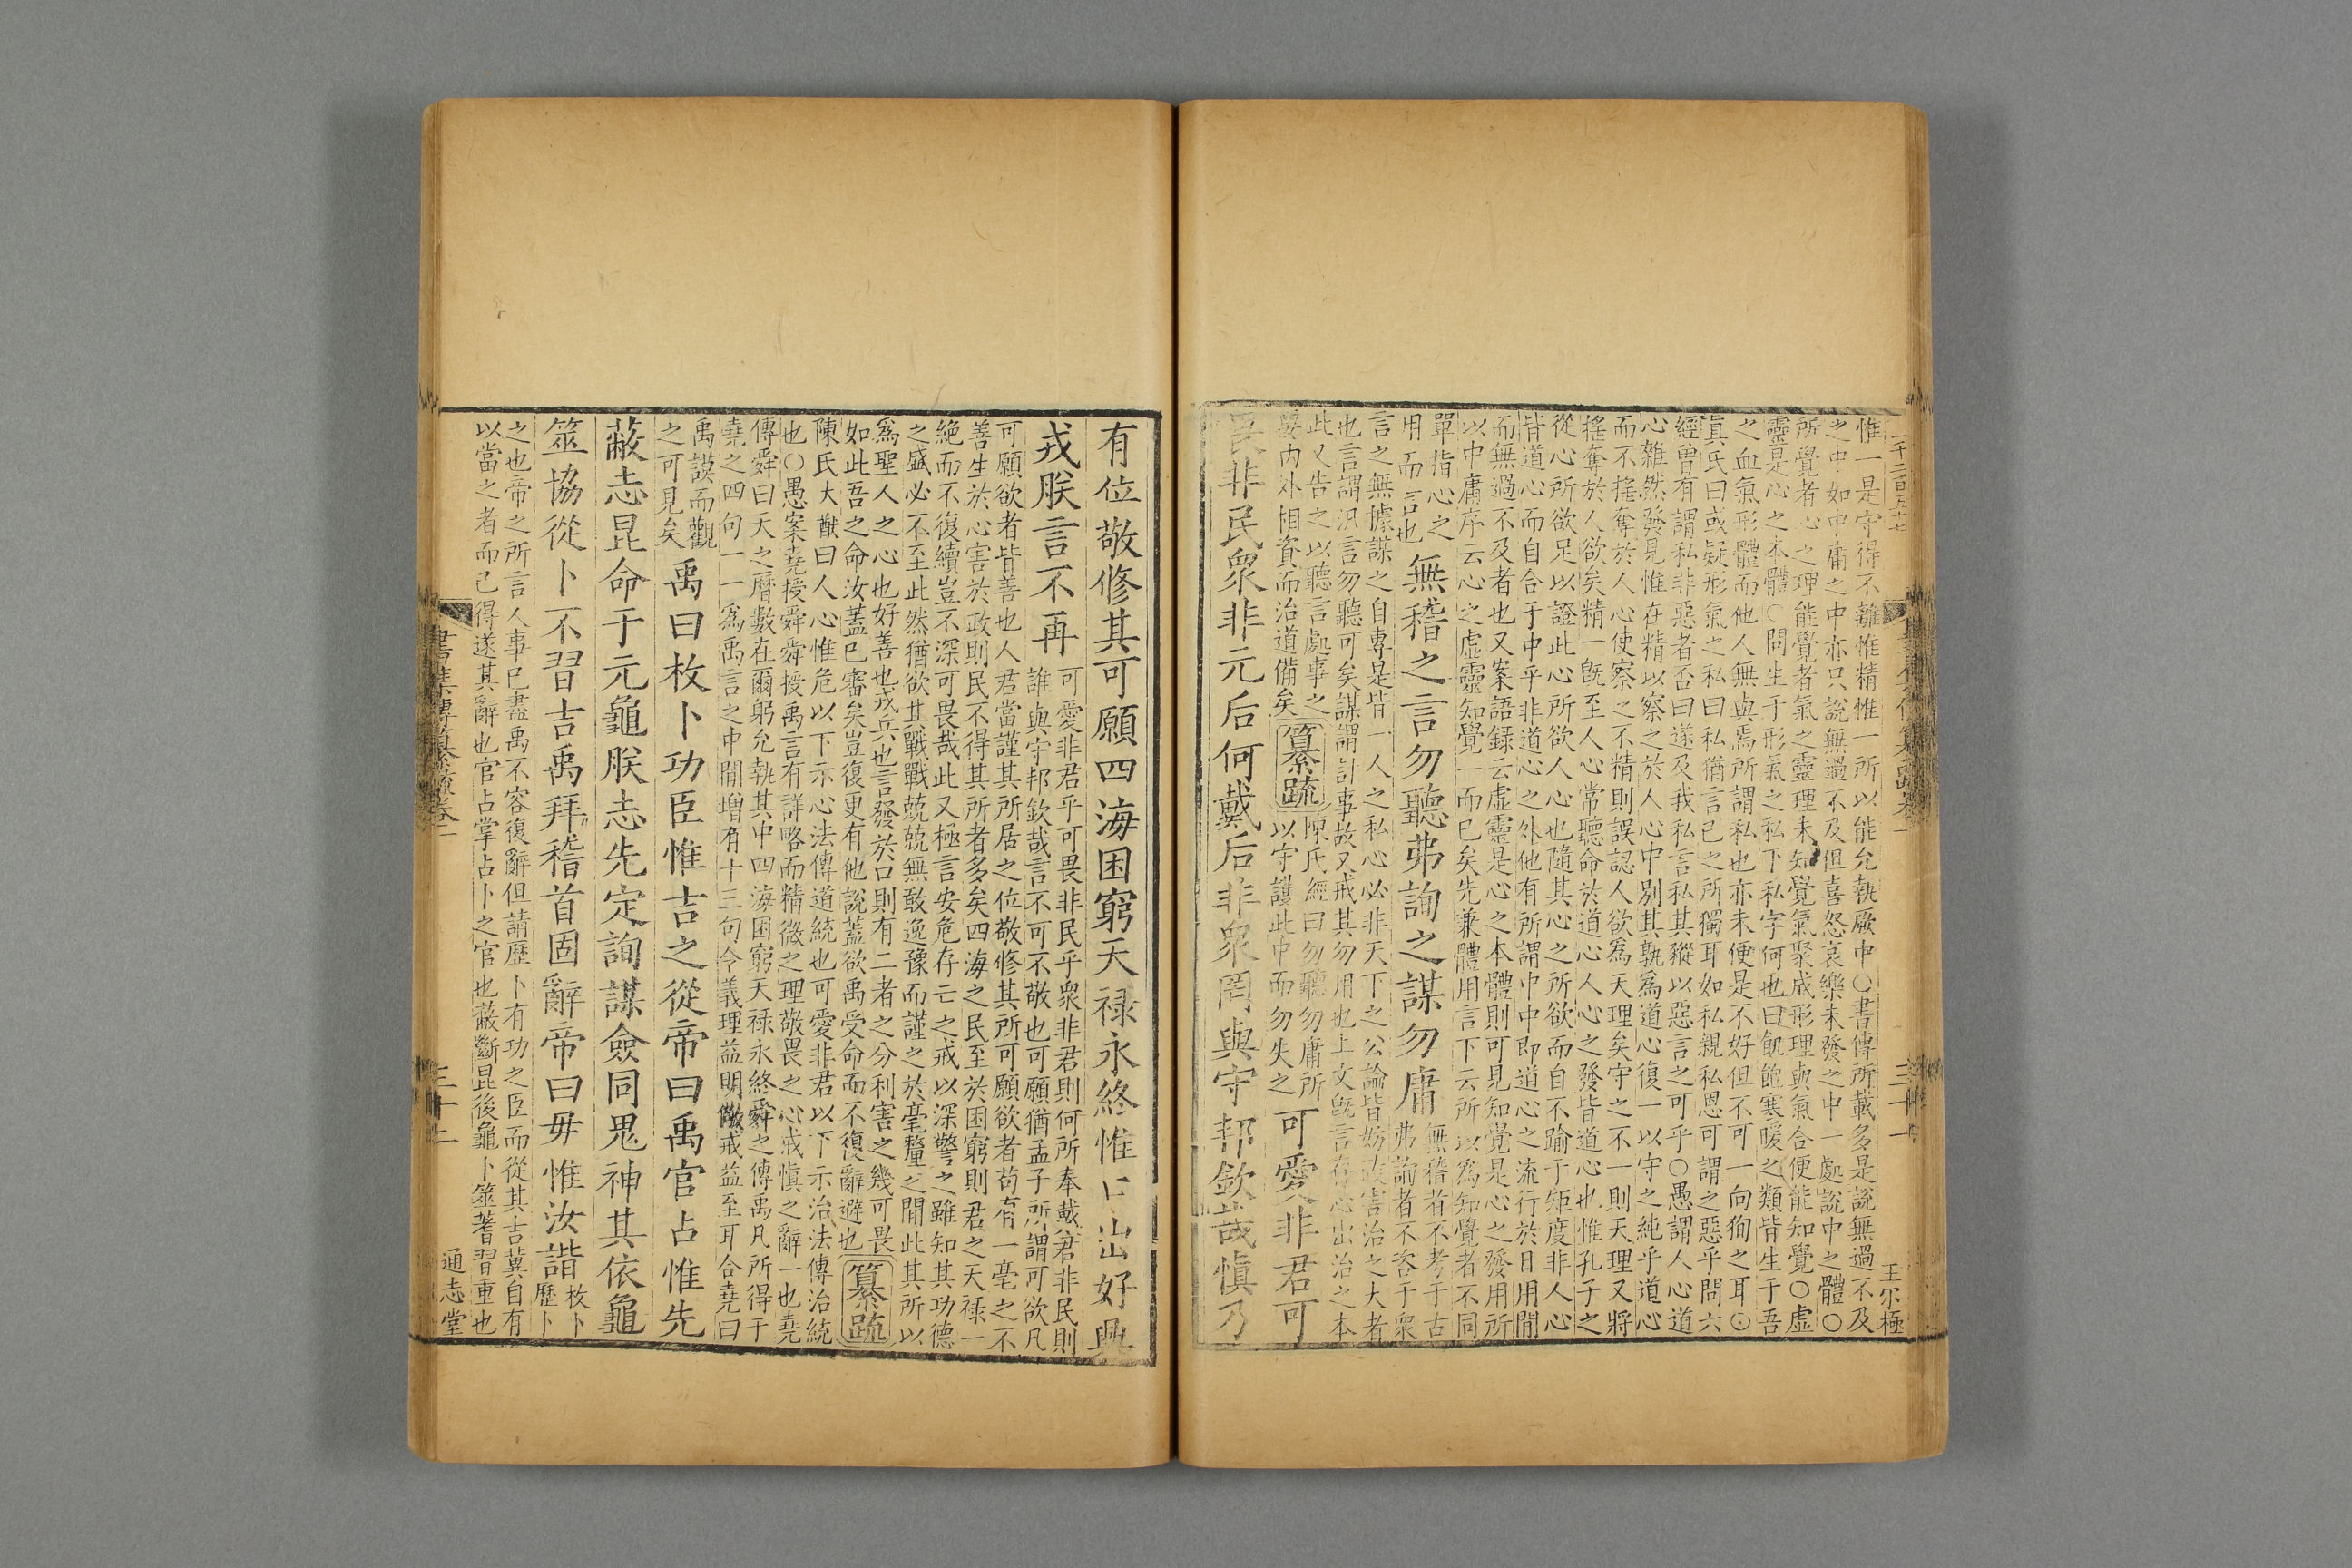 惟一是守得不離惟精惟一所以能允執厥中○書傳所載多是說無過不及
之中如中庸之中亦只說無過不及但喜怒哀樂未發之中一處說中之體○
所覺者心之理能覺者氣之靈理未知覺氣聚成形理與氣合便能知覺○虛
靈是心之本體○問生于形氣之私下私字何也曰飢飽寒暖之類皆生于吾
之血氣形體而他人無與焉所謂私也亦未便是不好但不可一向徇之耳⊙
真氏曰或疑形氣之私曰私猶言己之所獨耳如私親私恩可謂之惡乎問六
經曾有謂私非惡者否曰遂及我私言私其豵以惡言之可乎○愚謂人心道
心雜然發見惟在精以察之於人心中別其孰爲道心復一以守之純乎道心
而不搖奪於人心使察之不精則誤認人欲爲天理矣守之不一則天理又將
搖奪於人欲矣精一旣至人心常聽命於道心人心之發皆道心也惟孔子之
從心所欲足以證此心所欲人心也隨其心之所欲而自不踰于矩度非人心
皆道心而自合于中乎非道心之外他有所謂中中即道心之流行於日用間
而無過不及者也又案語録云虛靈是心之本體則可見知覺是心之發用所
以中庸序云心之虛靈知覺一而已矣先兼體用言下云所以爲知覺者不同
單指心之
用而言也
無稽之言勿聽弗詢之謀勿庸
無稽者不考于古
弗詢者不咨于衆
言之無據謀之自專是皆一人之私心必非天下之公論皆妨政害治之大者
也言謂汎言勿聽可矣謀謂計事故又戒其勿用也上文旣言存心出治之本
此又告之以聽言處事之
要內外相資而治道備矣
纂疏
陳氏經曰勿聽勿庸所
以守護此中而勿失之
可愛非君可
畏非民衆非元后何戴后非衆罔與守邦欽哉愼乃
王尔極
有位敬修其可願四海困窮天祿永終惟口出好興
戎朕言不再
可愛非君乎可畏非民乎衆非君則何所奉戴君非民則
誰與守邦欽哉言不可不敬也可願猶孟子所謂可欲凡
可願欲者皆善也人君當謹其所居之位敬修其所可願欲者苟有一毫之不
善生於心害於政則民不得其所者多矣四海之民至於困窮則君之天祿一
絕而不復續豈不深可畏哉此又極言安危存亡之戒以深警之雖知其功德
之盛必不至此然猶欲其戰戰兢兢無敢逸豫而謹之於毫釐之間此其所以
爲聖人之心也好善也戎兵也言發於口則有二者之分利害之幾可畏
如此吾之命汝蓋已審矣豈復更有他說蓋欲禹受命而不復辭避也
纂疏
陳氏大猷曰人心惟危以下示心法傳道統也可愛非君以下示治法傳治統
也○愚案堯授舜舜授禹言有詳略而精微之理敬畏之心戒愼之辭一也堯
傳舜曰天之曆數在爾躬允執其中四海困窮天祿永終舜之傳禹凡所得于
堯之四句一一爲禹言之中間增有十三句今義理益明儆戒益至耳合堯曰
禹謨而觀
之可見矣
禹曰枚卜功臣惟吉之從帝曰禹官占惟先
蔽志昆命于元龜朕志先定詢謀僉同鬼神其依龜
筮協從卜不習吉禹拜稽首固辭帝曰毋惟汝諧
枚卜
歷卜
之也帝之所言人事已盡禹不容復辭但請歷卜有功之臣而從其吉冀自有
以當之者而己得遂其辭也官占掌占卜之官也蔽斷昆後龜卜筮蓍習重也
書集傳纂疏卷一
三十二
通志堂